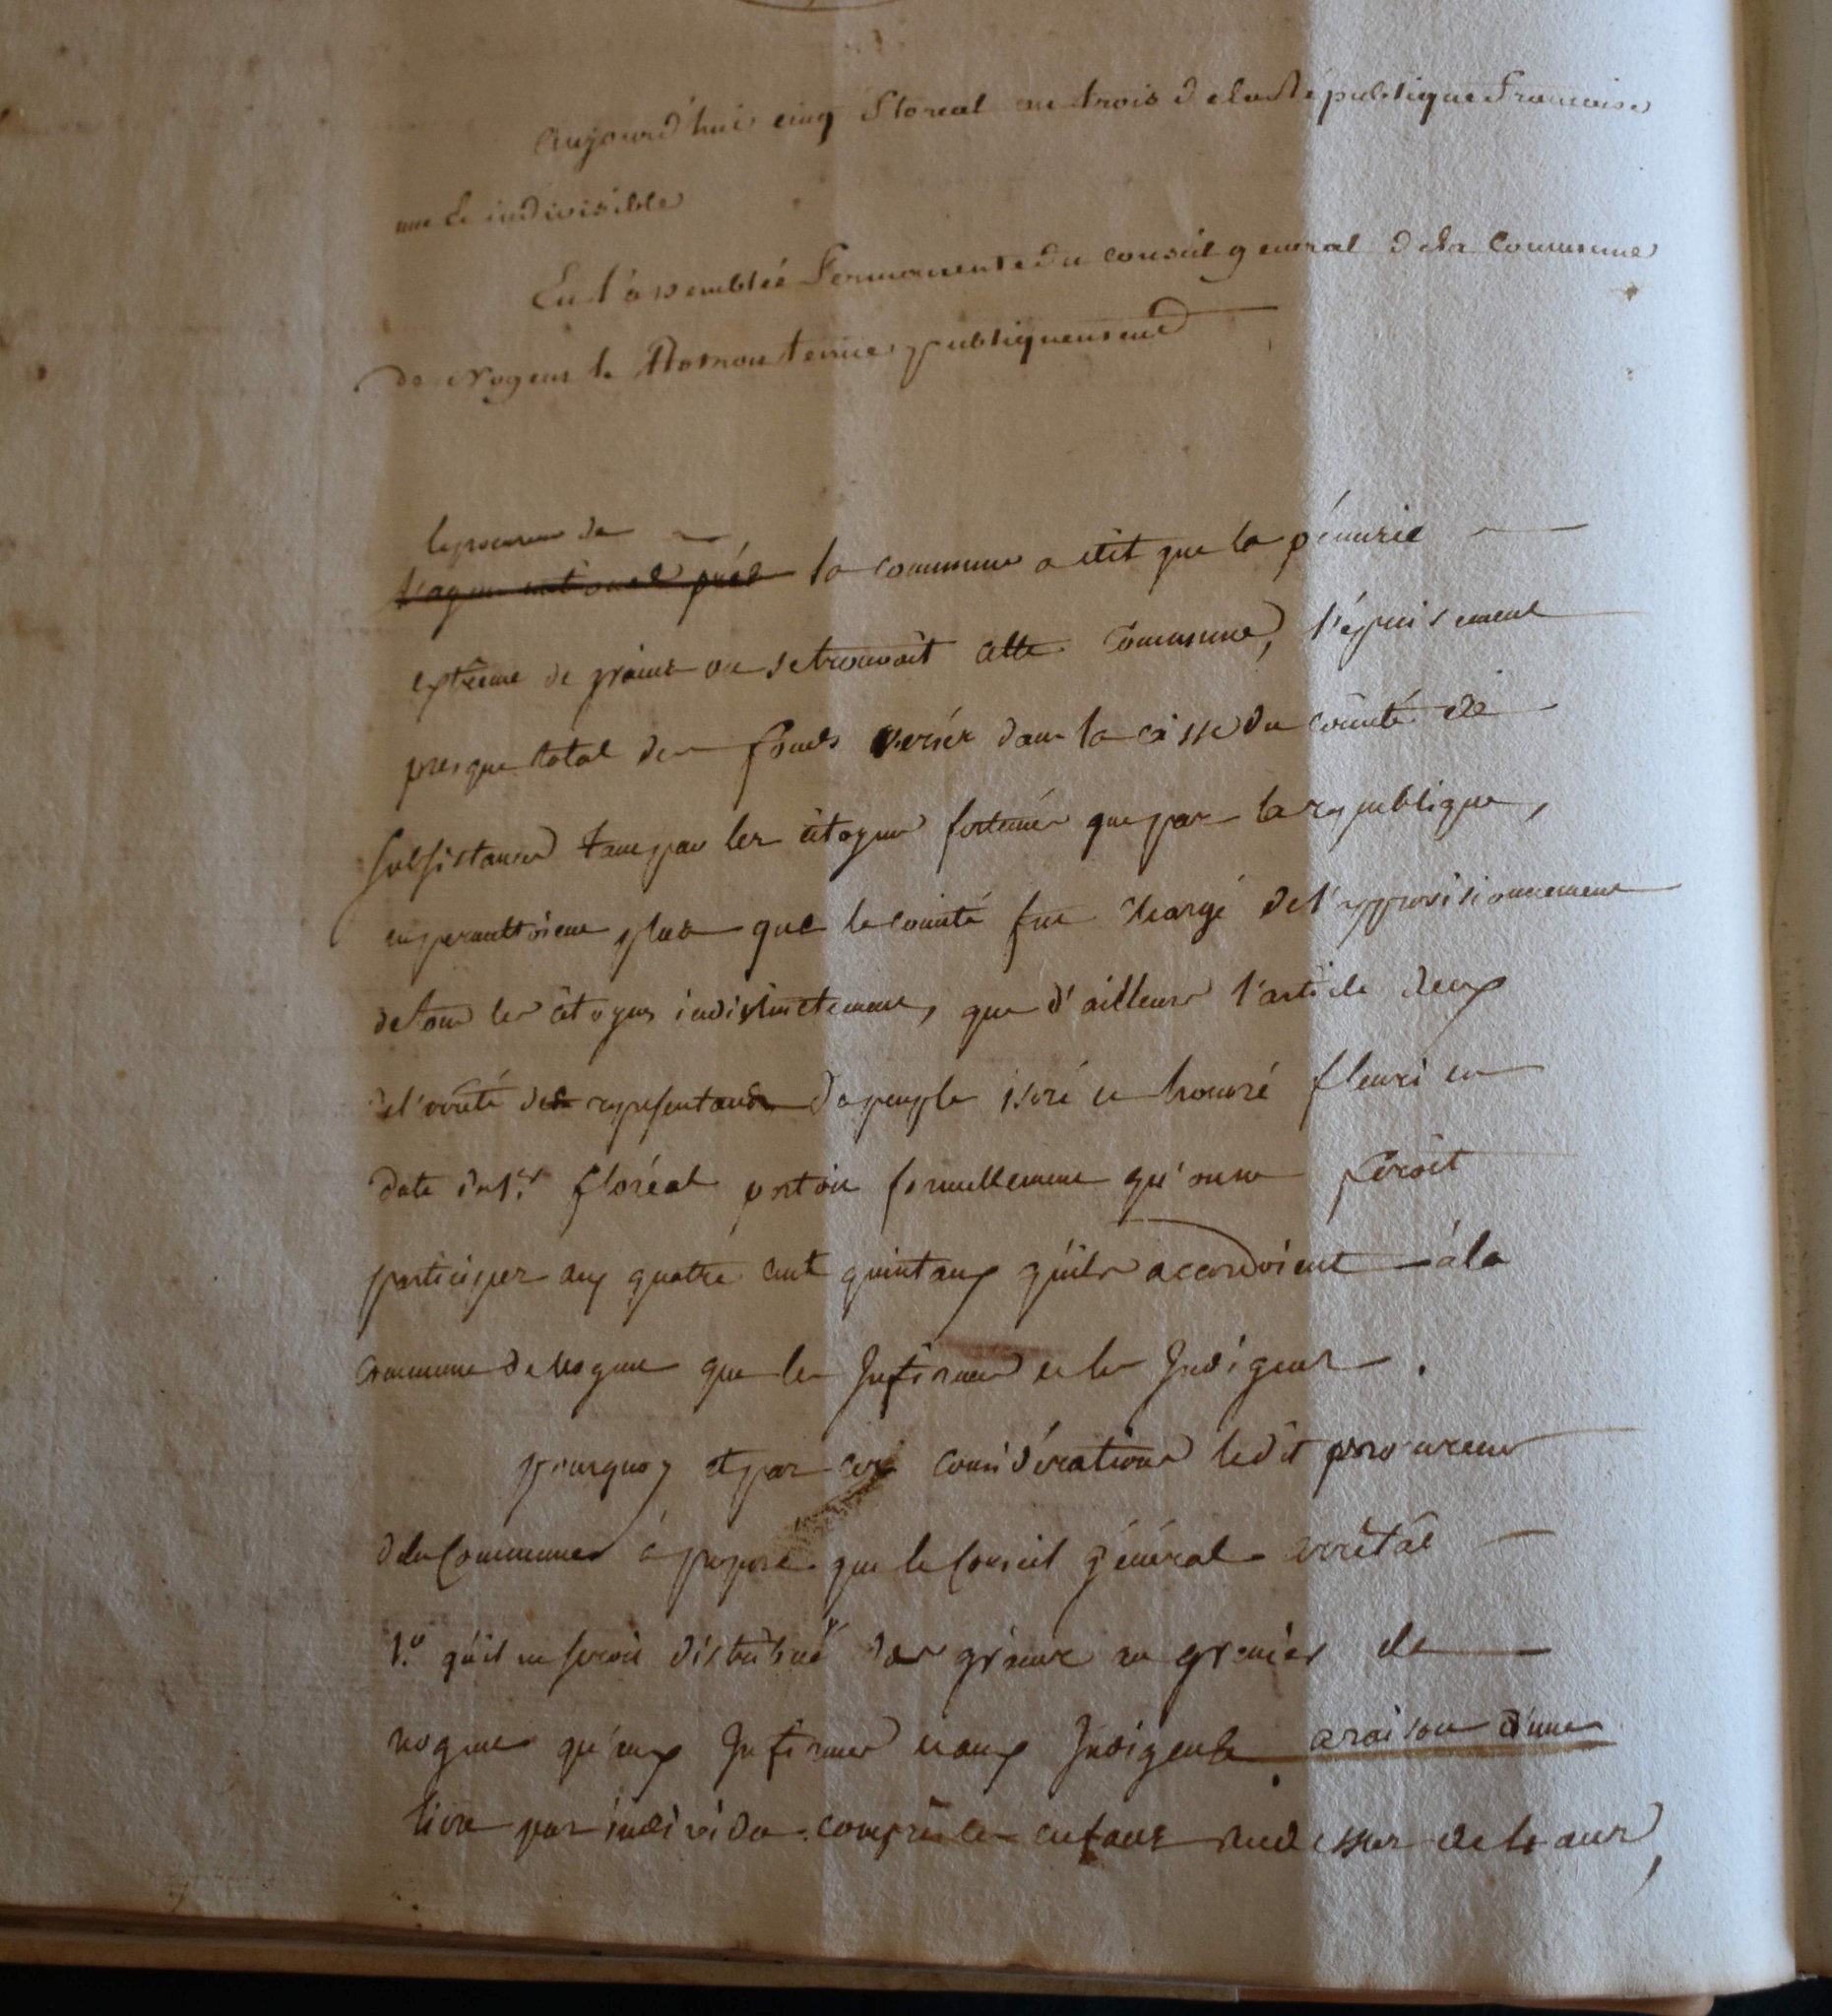 Aujourd'hui cinq floreal an trois de la République Francaise
une et indivisible
En l'assemblée Permanente du conseil general de la Commune
de Nogent le Rotrou tenue publiquement
le procureur de
l'agent national près la commune a dit que la pénurie
extrême de grains ou se trouvoit cette Commune, l'épuisement
presque total des fonds versés dans la caisse du comité de
subsistances tant par les citoyens fortunés que par la republique,
ne permettoient plus que le comité fut chargé de l'approvisionnement
de tous les citoyens indistinctement, que d'ailleurs l'article deux
de l'arrêté des representans du peuple isoré et honoré fleuri en
date du 1er floréal portoit formellement qu'on ne feroit
participer aux quatre cent quintaux qu'ils accordoient à la
Commune de Nogent que les Infirmes et les Indigens.
pourquoy et par ces considérations ledit procureur
de la Commune a proposé que le Conseil général arrêtât
1.º qu'il ne seroit distribué des grains au grenier de
nogent qu'aux Infirmes et aux Indigents a raison d'une
livre par individu compris les enfans audessus de ans,